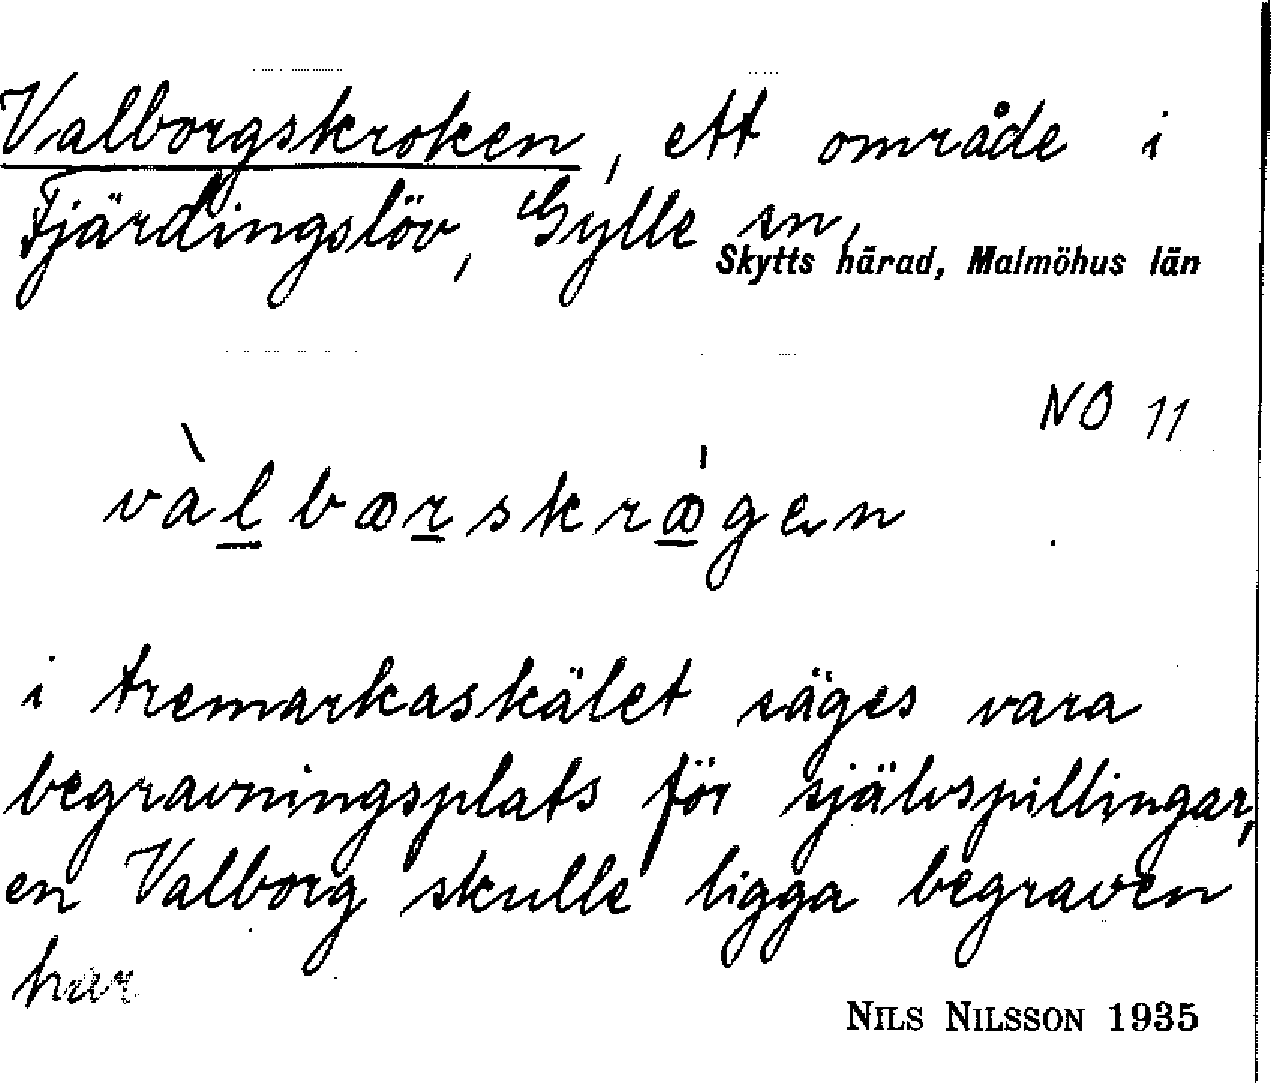 Valborgskroken, ett område i
Fjärdingslöv, Gylle sn,
Skytts härad, Malmöhus län
NO 11
vàlbœrskrœ́gen
i tremarkaskälet säges vara
begravningsplats för självspillingar,
en Valborg skulle ligga begraven
här
NILS NILSSON 1935